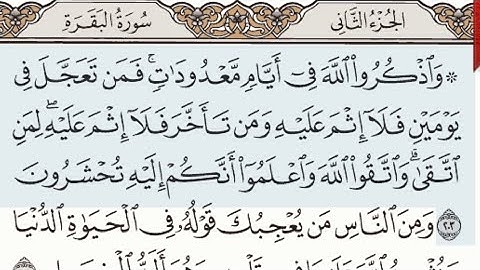 الجُزْءُ الثَّانِي
سُورَةُ البَقَرَةِ
۞ وَٱذْكُرُوا۟ ٱللَّهَ فِىٓ أَيَّامٍ مَّعْدُودَٰتٍ ۚ فَمَن تَعَجَّلَ فِى
يَوْمَيْنِ فَلَآ إِثْمَ عَلَيْهِ وَمَن تَأَخَّرَ فَلَآ إِثْمَ عَلَيْهِ ۖ لِمَنِ
ٱتَّقَىٰ ۗ وَٱتَّقُوا۟ ٱللَّهَ وَٱعْلَمُوٓا۟ أَنَّكُمْ إِلَيْهِ تُحْشَرُونَ
٢٠٣ وَمِنَ ٱلنَّاسِ مَن يُعْجِبُكَ قَوْلُهُۥ فِى ٱلْحَيَوٰةِ ٱلدُّنْيَا